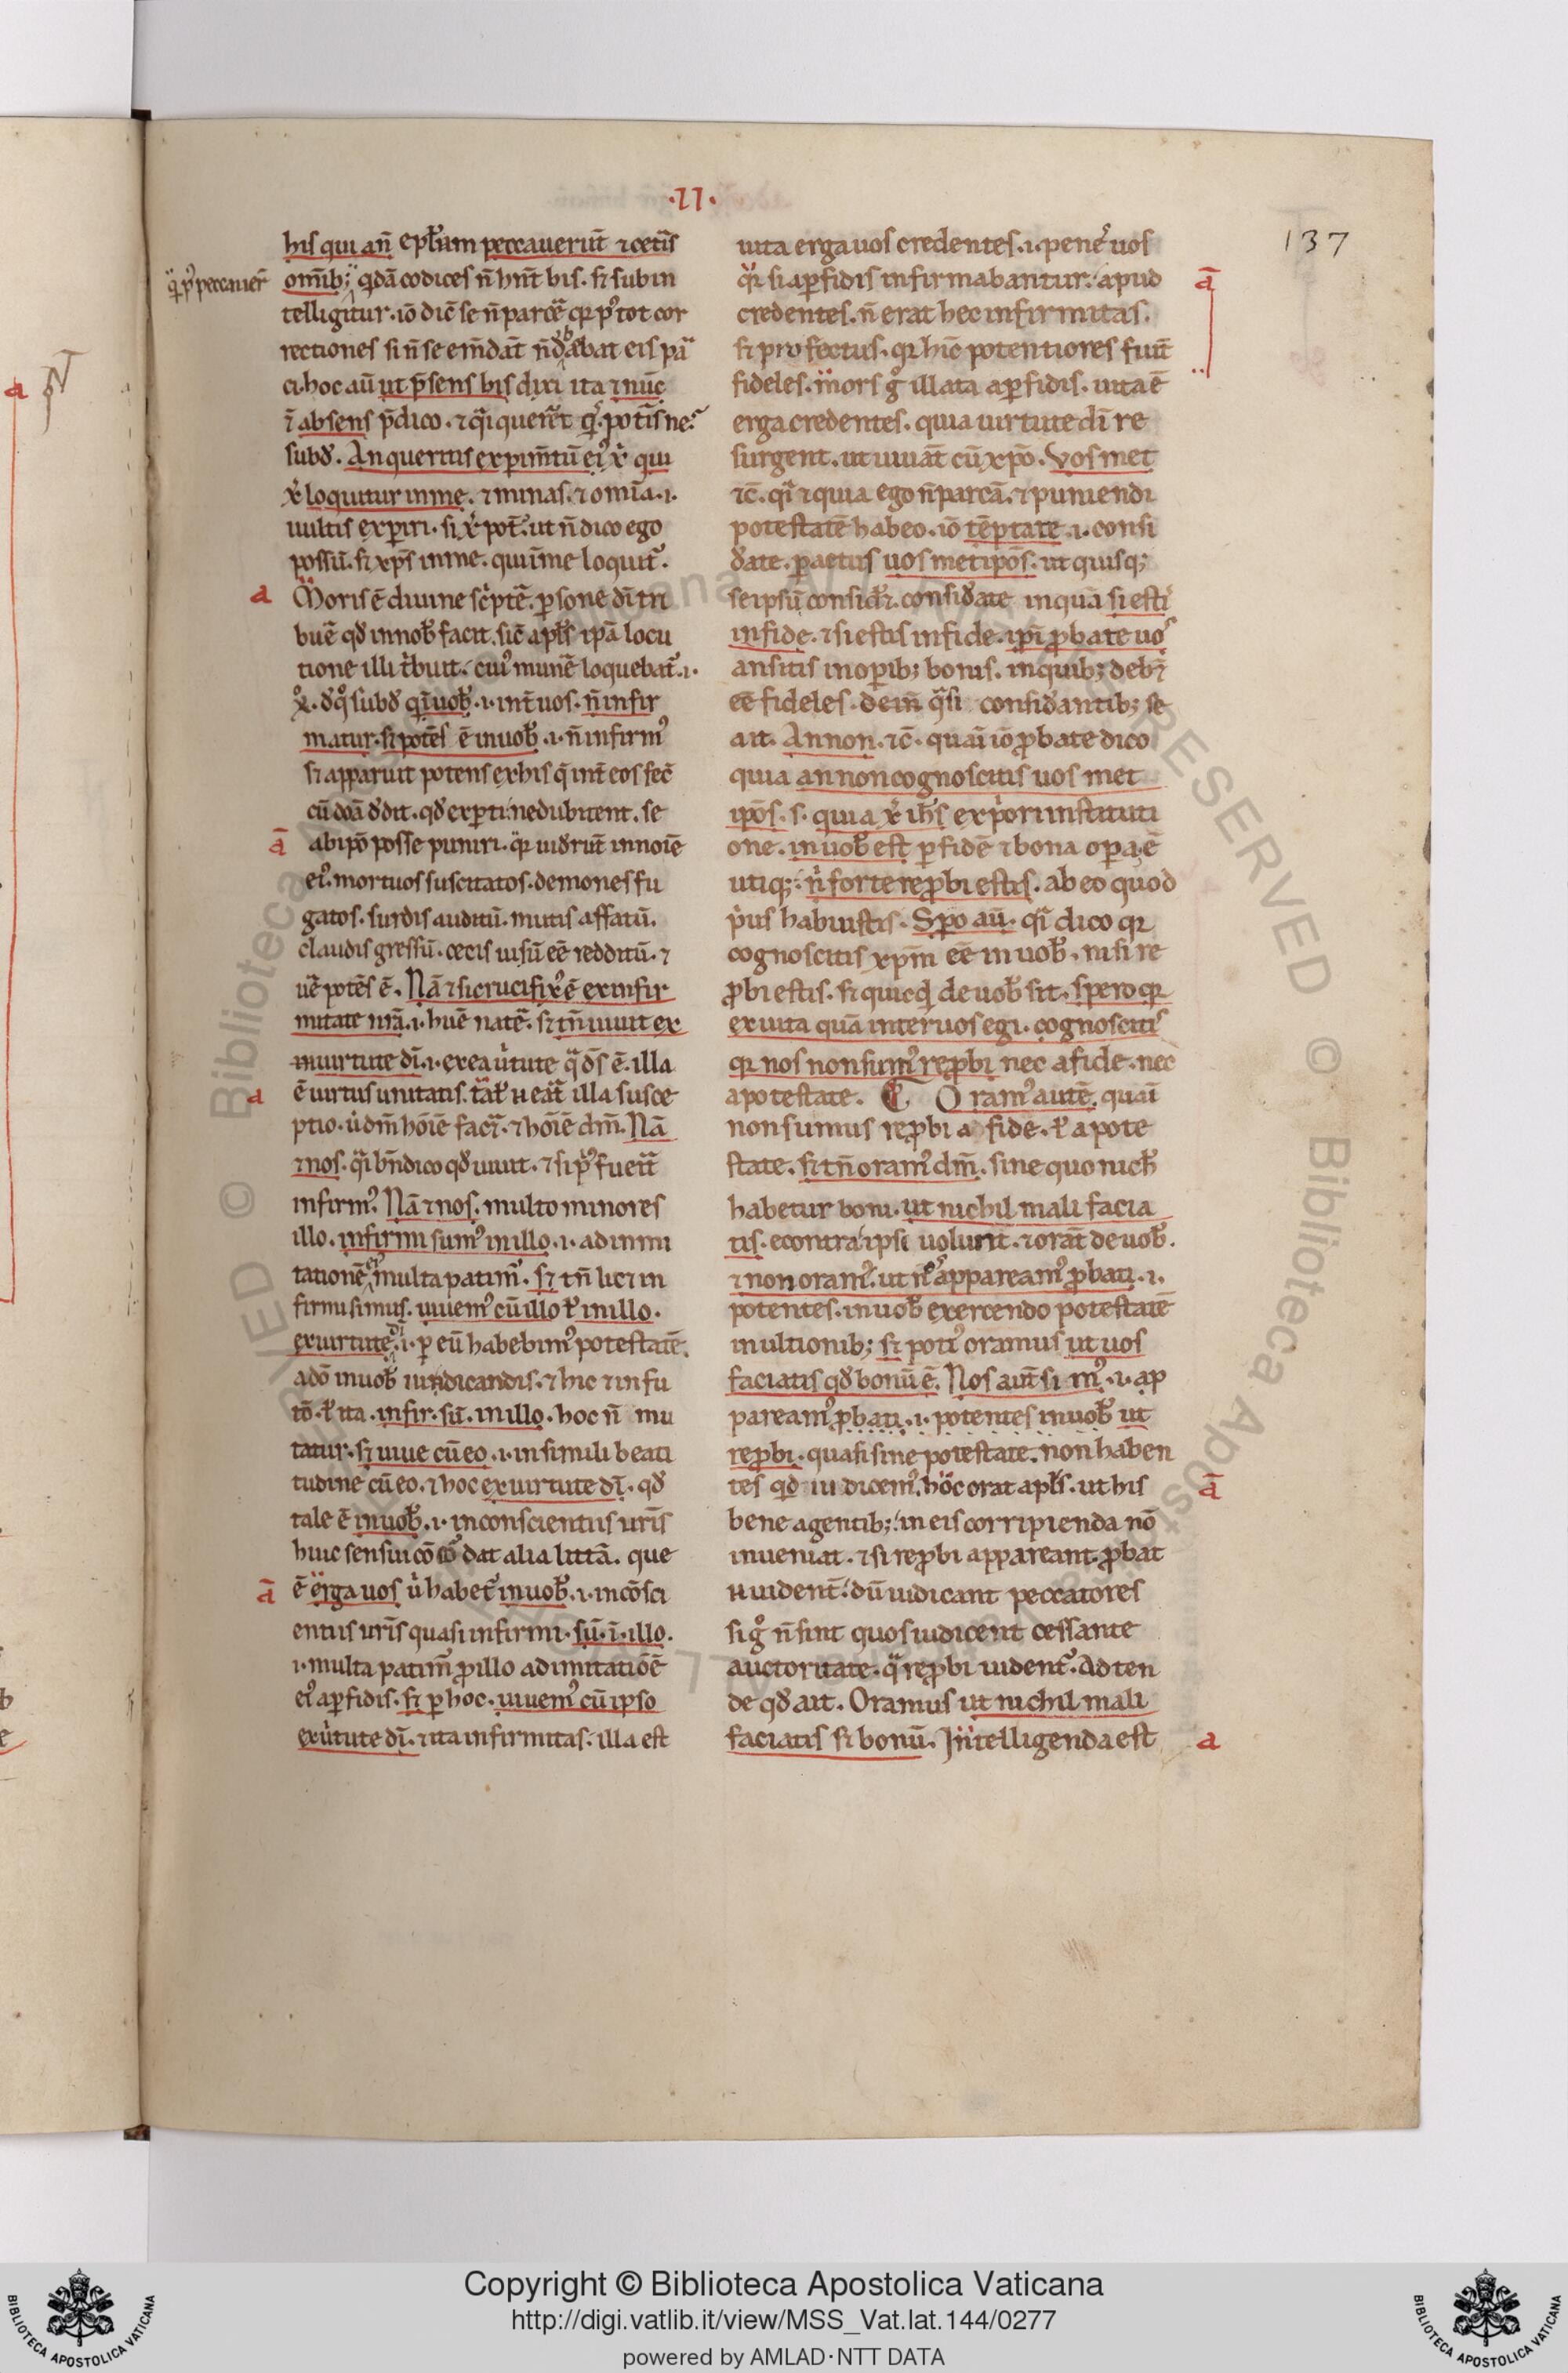 ·II·
137
his qui an̄ epl̄am peccauerūt ⁊ cetīs
om̄ib; qdā codices n̄ hn̄t bis. s; subin
telligitur. iō dic̄ se n̄ parcē qr p' tot cor
rectiones si n̄ se em̄dāt n̄ dabat eis pa
ci. hoc aū ut p̄sens bis dixi ita ⁊ nūc
⁊ absens p̄dico. ⁊
subd'. An queritis exp̄im̄tū ei' x̄ qui
x̄ loquitur in me. ⁊ minas. ⁊ om̄ia. .i.
uultis exp̄iri. si x̄ pot̄. ut n̄ dico ego
possū. s; xp̄s in me. qui ī me loquit̄.
a Moris ē diuine sc'ptē. p̄sone dī tri
buē qd' in nob' facit. sic̄ apl's ip̄a locu
tione illi t'buit. cui' munē loquebat̄. .i.
x̄. subd' q̄ ī uob'. .i. int̄ uos. n̄ infir
matur. s; potēs ē in uob' .i. n̄ infirm'
s; apparuit potens ex his q̄ int̄ eos fec̄
cū dona d'dit. qd' exp̄ti ne dubitent. se
ā ab ip̄o posse puniri. uid'rūt in noīe
ei'. mortuos suscitatos. demones fu
gatos. surdis auditū. mutis affatū.
claudis gressū. cecis uisū eē redditū. ⁊
uē potēs ē. Nā ⁊ si crucifix' ē ex infir
mitate nr̄a. .i. huē natē. s; tn̄ uiuit ex
uirtute dī. .i. ex ea u'tute q̄ d's ē. illa
a ē uirtus unitatis. illa susce
ptio. u' dm̄ hōīē fac̄. ⁊ hōīē dm̄. Nā
⁊ nos. bn̄ dico qd' uiuit. ⁊ si p' fuerit
infirm'. Nā ⁊ nos. multo minores
illo. infirmi sum' in illo. .i. ad imi
tationē ei' multa patim'. s; tn̄ lic; in
firmi simus. uiuem' cū illo ł in illo.
ex uirtute dī. .i. p̄ eū habebim' potestatē.
adō in uob' iudicandis. ⁊ hic ⁊ in fu
tō. ł ita. infir. sū. in illo. hoc n̄ mu
tatur. s; uiue cū eo. .i. in simili beati
tudine cū eo. ⁊ hoc ex uirtute dī. qd'
tale ē in uob'. .i. in conscientiis ur̄is
huic sensui dat alia litt̄a. que
ā ē erga uos u' habet̄ in uob'. .i. in cōsci
entiis ur̄is quasi infirmi. sū. ī. illo.
.i. multa patim' p̄ illo ad imitatiōē
ei' a p̄fidis. s; p̄ hoc. uiuem' cū ipso
ex u'tute dī. ⁊ ita infirmitas. illa est
uita erga uos credentes. .i. pene' uos
qr si a p̄fidis infirmabantur. apud ā
credentes. n̄ erat hec infirmitas.
s; profectus. qr hic̄ potentiores fiūt
fideles. mors g° illata a p̄fidis. uita ē
erga credentes. quia uirtute dī re
surgent. ut uiuāt cū xp̄o. Vos met
⁊c̄. q̄ ⁊ quia ego n̄ parcā. ⁊ puniendi
potestatē habeo. iō tēptate .i. consi
d'ate. p̄ actus uos met ipōs. ut quisq;
se ipsū consid'. consid'ate inquā si esti'
in fide. ⁊ si estis in fide. ip̄i p̄bate uo'
an sitis in op̄ib; bonis. in quib; deb;
eē fideles. dein̄ q̄si consid'antib; se
ait. An non. ⁊c̄. quasi iō p̄bate dico
quia an non cognoscitis uos met
ipōs. s. quia x̄ ih's ex p'ori instituti
one. in uob' est p̄ fidē ⁊ bona op̄a. ē
utiq; n' forte rep̄bi estis. ab eo quod
p'us habuistis. Spo aū. q̄ dico qr
cognoscitis xp̄m eē in uob'. nisi re
p̄bi estis. s; quicq̄ de uob' sit. spero qr
ex uita quā inter uos egi. cognosciti'
qr nos non sum' rep̄bi nec a fide. nec
a potestate. ¶ Oram' autē. quasi
non sumus rep̄bi a fide. ł a pote
state. s; tn̄ oram' dm̄. sine quo nich'
habetur boni. ut nichil mali facia
tis. econtra ipsi uolunt. ⁊ orāt de uob'.
⁊ non oram'. ut n' appaream' p̄bati. .i.
potentes. in uob' exercendo potestatē
in ultionib; s; poti' oramus ut uos
faciatis qd' bonū ē. Nos aut̄ si m'. .i. ap
paream' p̄bati. .i. potentes in uob' ut
rep̄bi. quasi sine potestate. non haben
tes qd iudicem'. hoc orat apl's. ut his ā
bene agentib; in eis corripienda nō
inueniat. ⁊ si rep̄bi appareant. p̄bat
n uident̄. dū iudicant peccatores
si g° n̄ sint quos iudicent cessante
auctoritate. q̄si rep̄bi uident̄. Ad ten
de qd' ait. Oramus ut nichil mali
faciatis s; bonū. Intelligenda est a
Copyright © Biblioteca Apostolica Vaticana
http://digi.vatlib.it/view/MSS_Vat.lat.144/0277
powered by AMLAD·NTT DATA